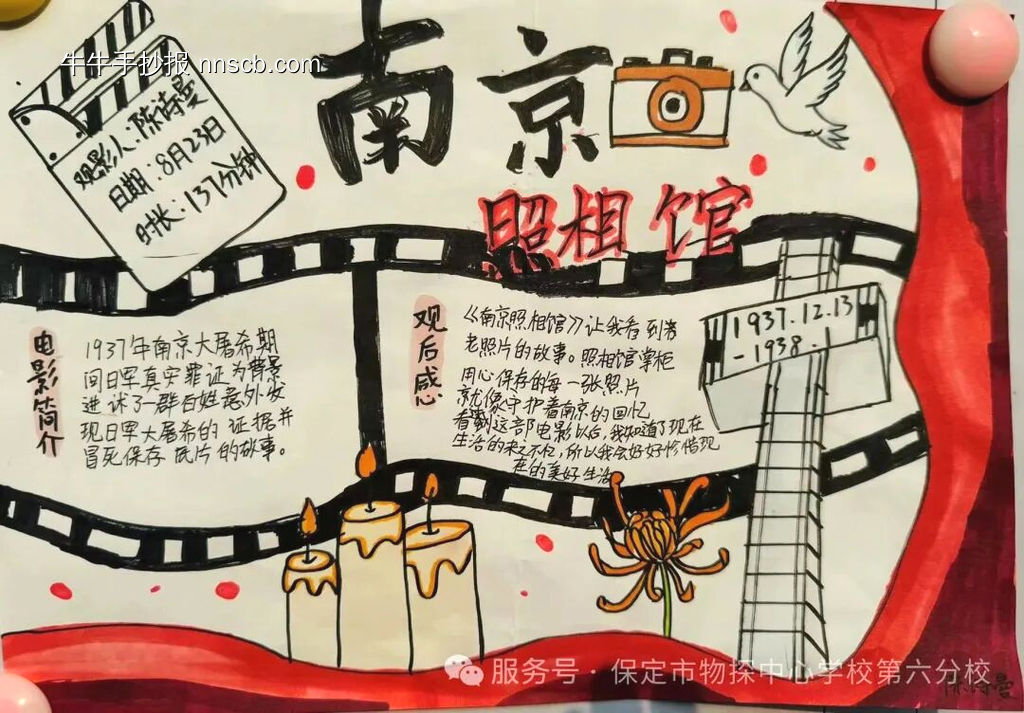 牛牛手抄报 nnscb.com
南京
照相馆
观影人:陈诗曼
日期:8月23日
时长:137分钟
电影简介
1937年南京大屠希期
间日军真实罪证为背景
进述了一群百姓意外发
现日军大屠希的证据并
冒死保存底片的故事。
观后感
《南京照相馆》让我看到着
老照片的故事。照相馆掌柜
用心保存的每一张照片
就像守护着南京的回忆
看剩这部电影以后,我知道了现在
生活的来之不亿,所以我会好好惜现
在的美好生活
1937.12.13
-1938.1
服务号·保定市物探中心学校第六分校
陈诗曼